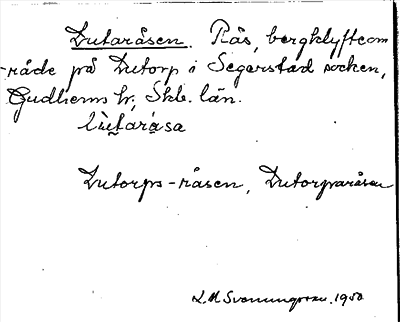 Lutaråsen. Rås, bergklyfteom
-råde på Lutorp i Segerstad socken,
Gudhems hr, Skb. län.
lùtaråsa
Lutorps-råsen, Lutorparåsen
L. M. Svenungsson. 1950